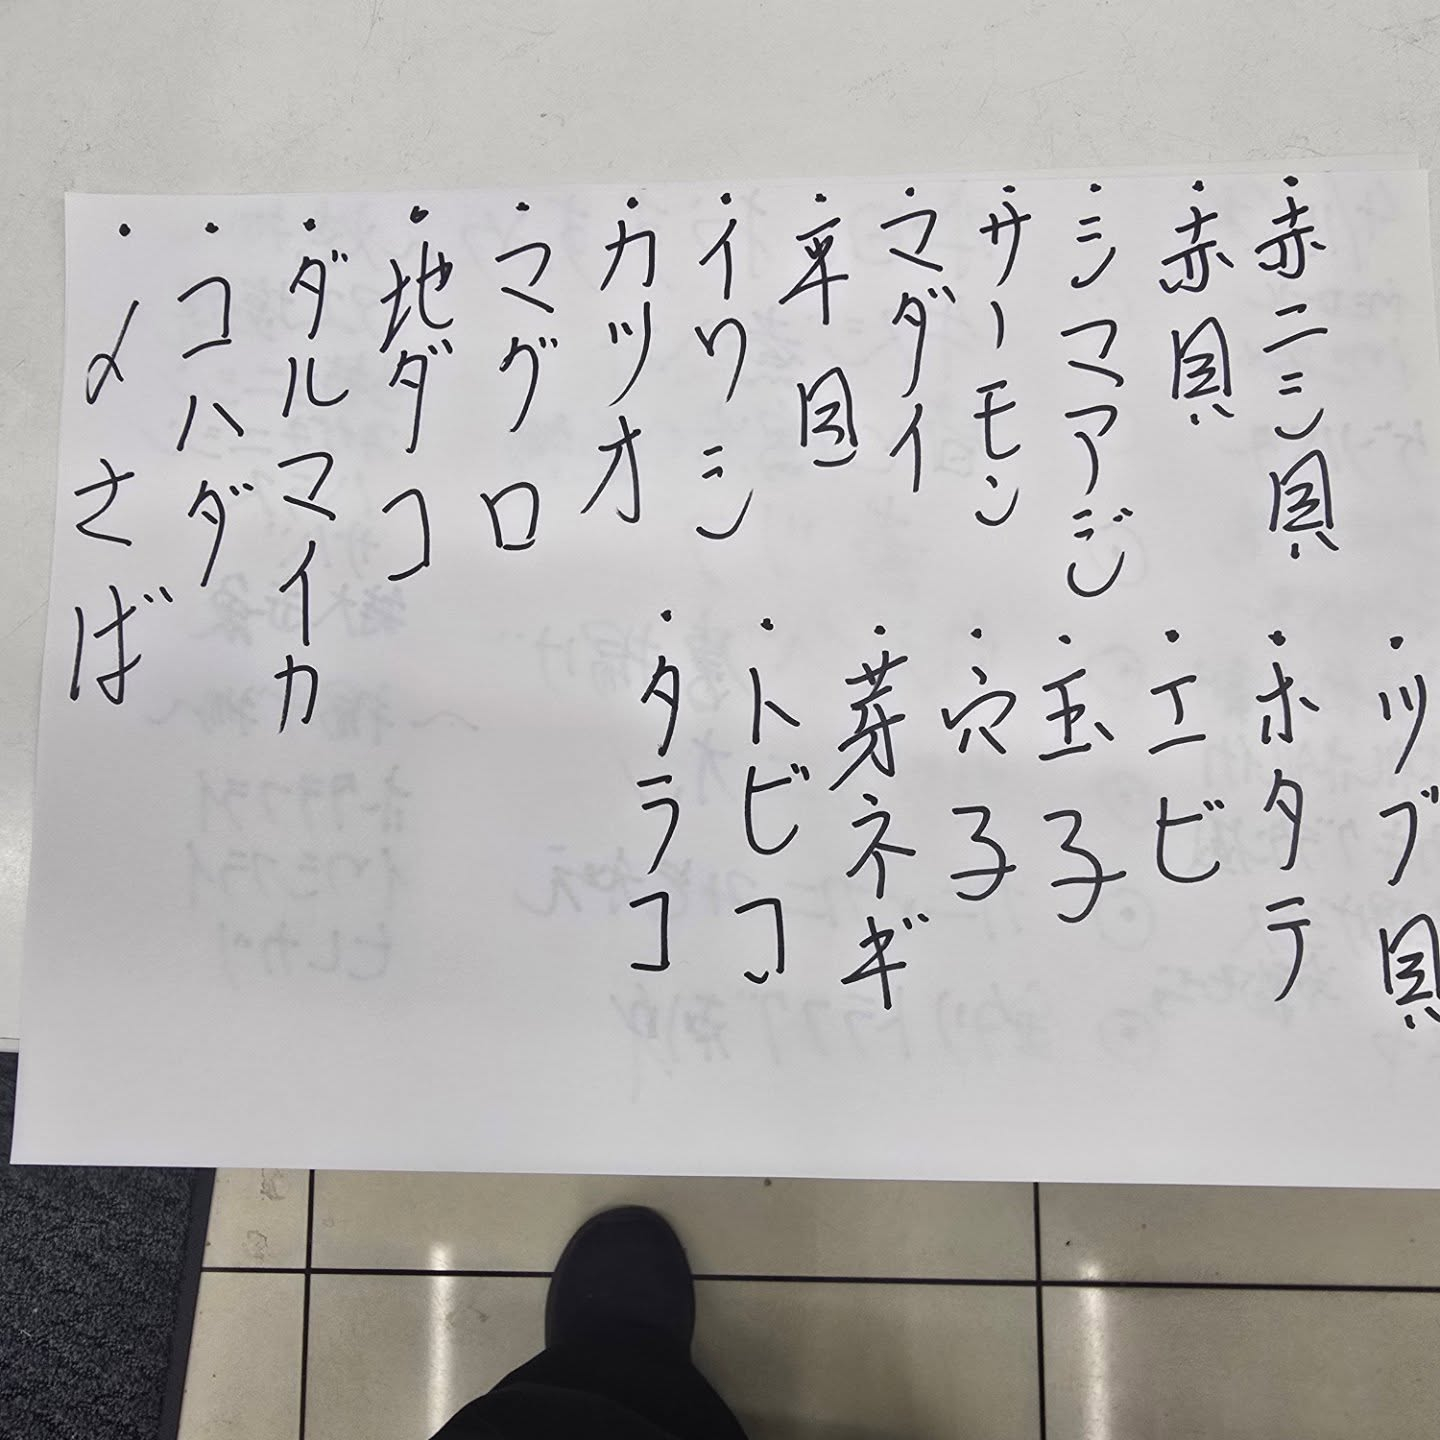 ・赤ニシ貝
・赤貝
・シマアジ
・サーモン
・マダイ
・平目
・イワシ
・カツオ
・マグロ
・地ダコ
・ダルマイカ
・コハダ
・〆さば
・ツブ貝
・ホタテ
・エビ
・玉子
・穴子
・芽ネギ
・トビコ
・タラコ